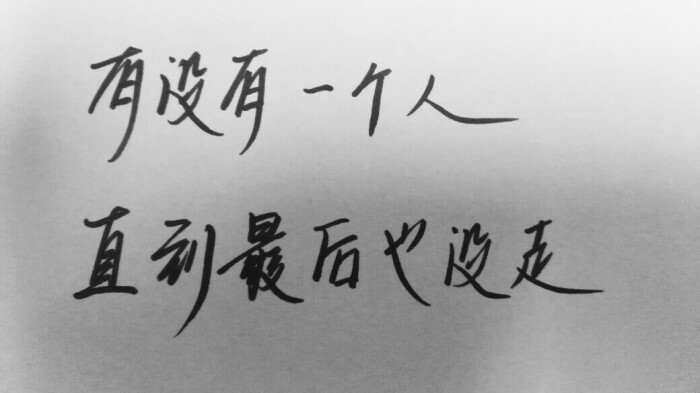 有没有一个人
直到最后也没走